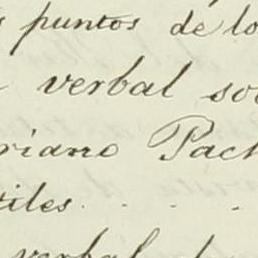 puntos de lo
verbal so
riano Pach
tiles. . . .
verbal